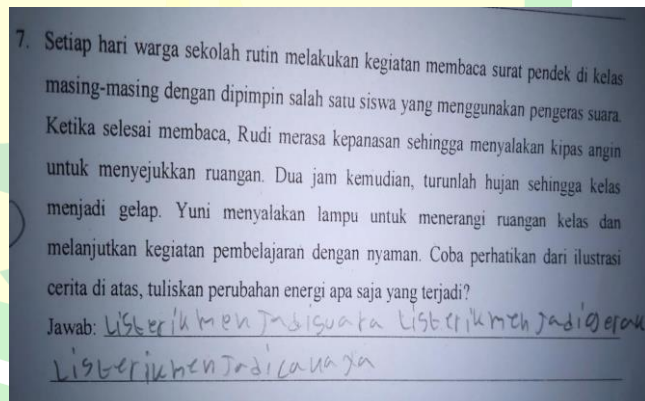 7. Setiap hari warga sekolah rutin melakukan kegiatan membaca surat pendek di kelas
masing-masing dengan dipimpin salah satu siswa yang menggunakan pengeras suara.
Ketika selesai membaca, Rudi merasa kepanasan sehingga menyalakan kipas angin
untuk menyejukkan ruangan. Dua jam kemudian, turunlah hujan sehingga kelas
menjadi gelap. Yuni menyalakan lampu untuk menerangi ruangan kelas dan
melanjutkan kegiatan pembelajaran dengan nyaman. Coba perhatikan dari ilustrasi
cerita di atas, tuliskan perubahan energi apa saja yang terjadi?
Jawab: Listerik men Jadisuara Listerik men Jadigerak
Listerik men Jadi cahaya